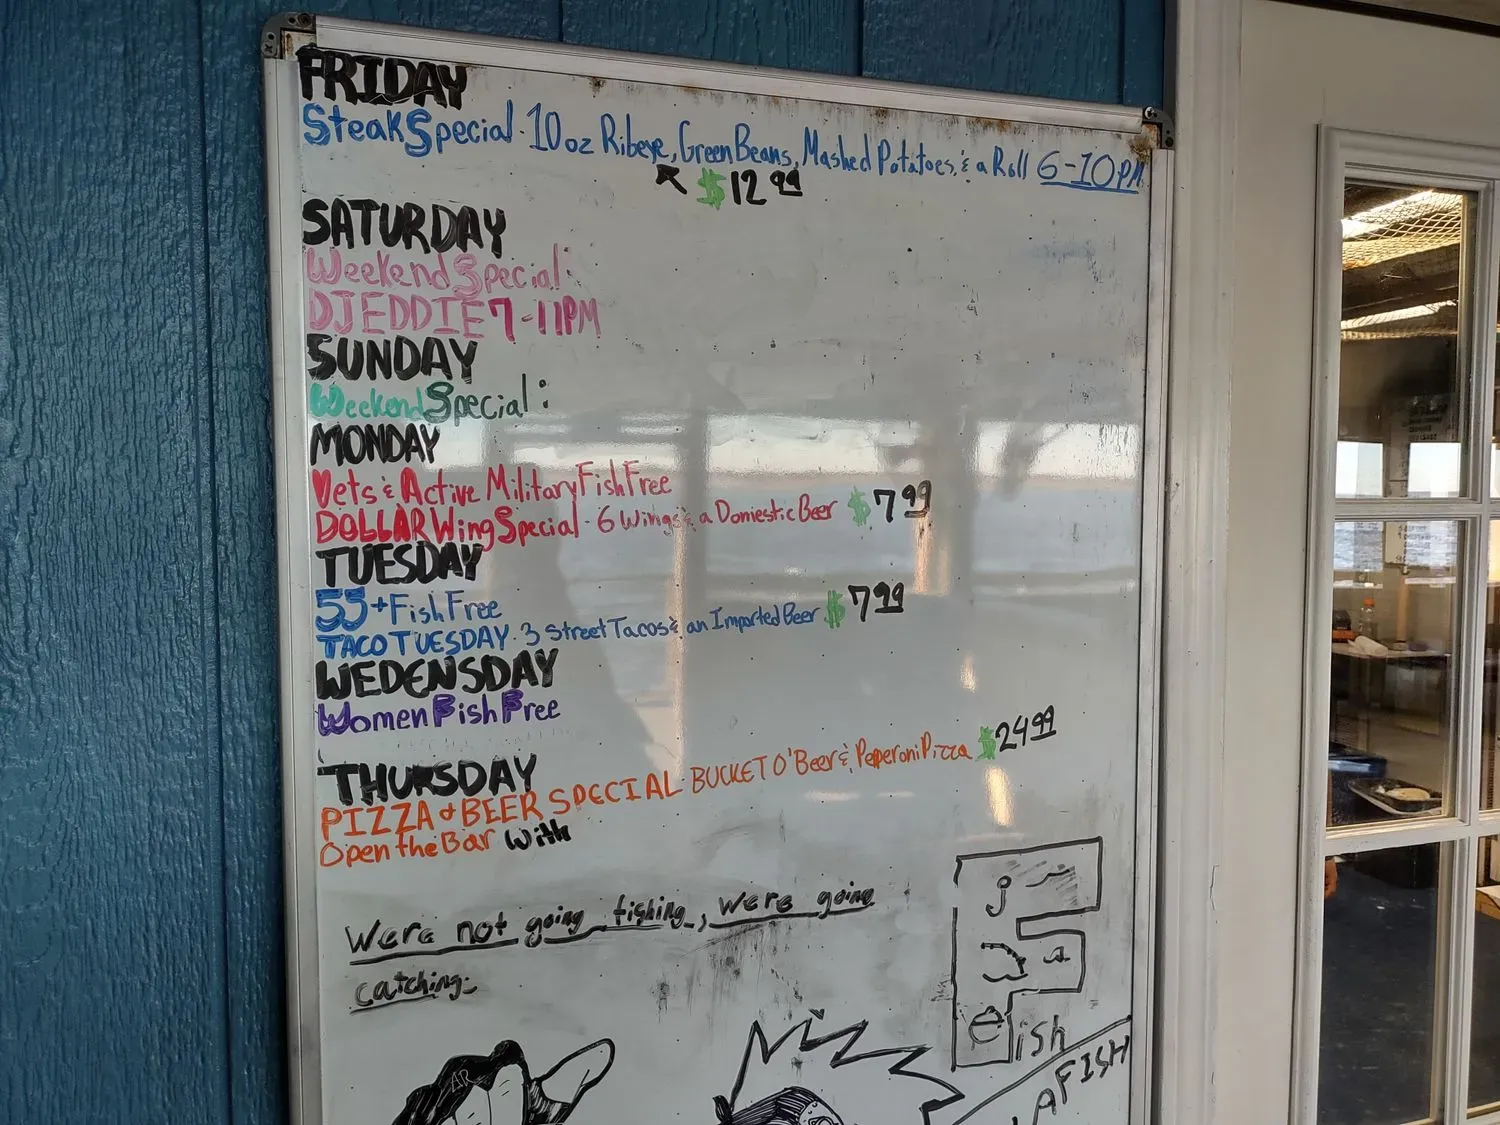 FRIDAY
Steak Special - 10 oz Ribeye, Green Beans, Mashed Potatoes, & a Roll 6-10PM
$12.99
SATURDAY
Weekend Special:
DJ EDDIE 7-11PM
SUNDAY
Weekend Special:
MONDAY
Vets & Active Military Fish Free
DOLLAR Wing Special - 6 Wings & a Domestic Beer $7.99
TUESDAY
55+ Fish Free
TACO TUESDAY - 3 Street Tacos & an Imported Beer $7.99
WEDENSDAY
Women Fish Free
THURSDAY
PIZZA & BEER SPECIAL - BUCKET O' Beer & Peperoni Pizza $24.99
Open the Bar With
Were not going fishing, were going
catching.
ish
AFISH
AR